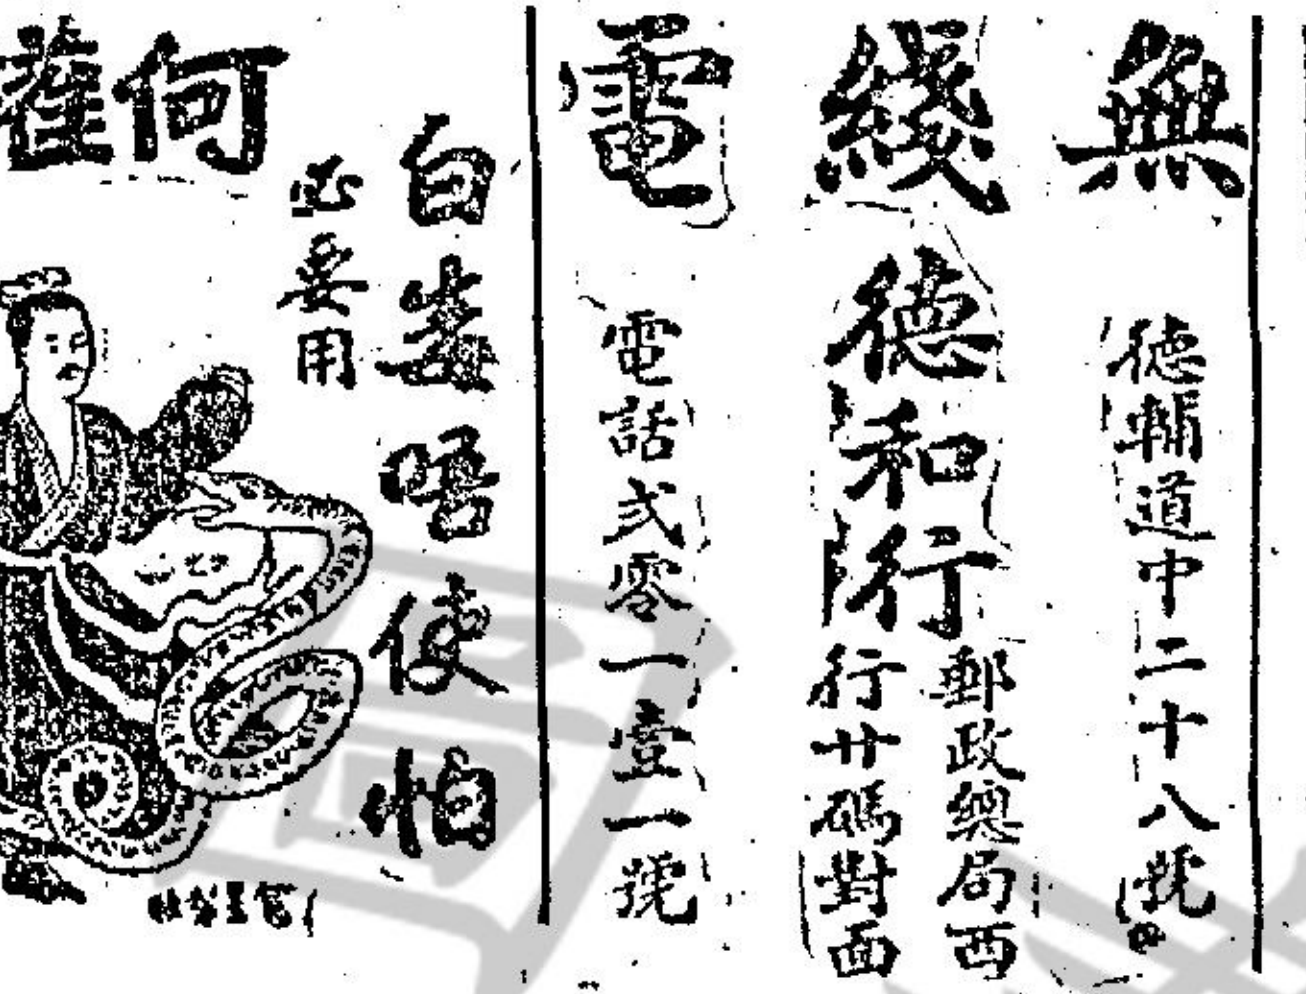 無綫電
德輔道中二十八號
德和行
郵政總局西
行廿碼對面
電話弍零一壹一號
白 唔使怕
必要用
何